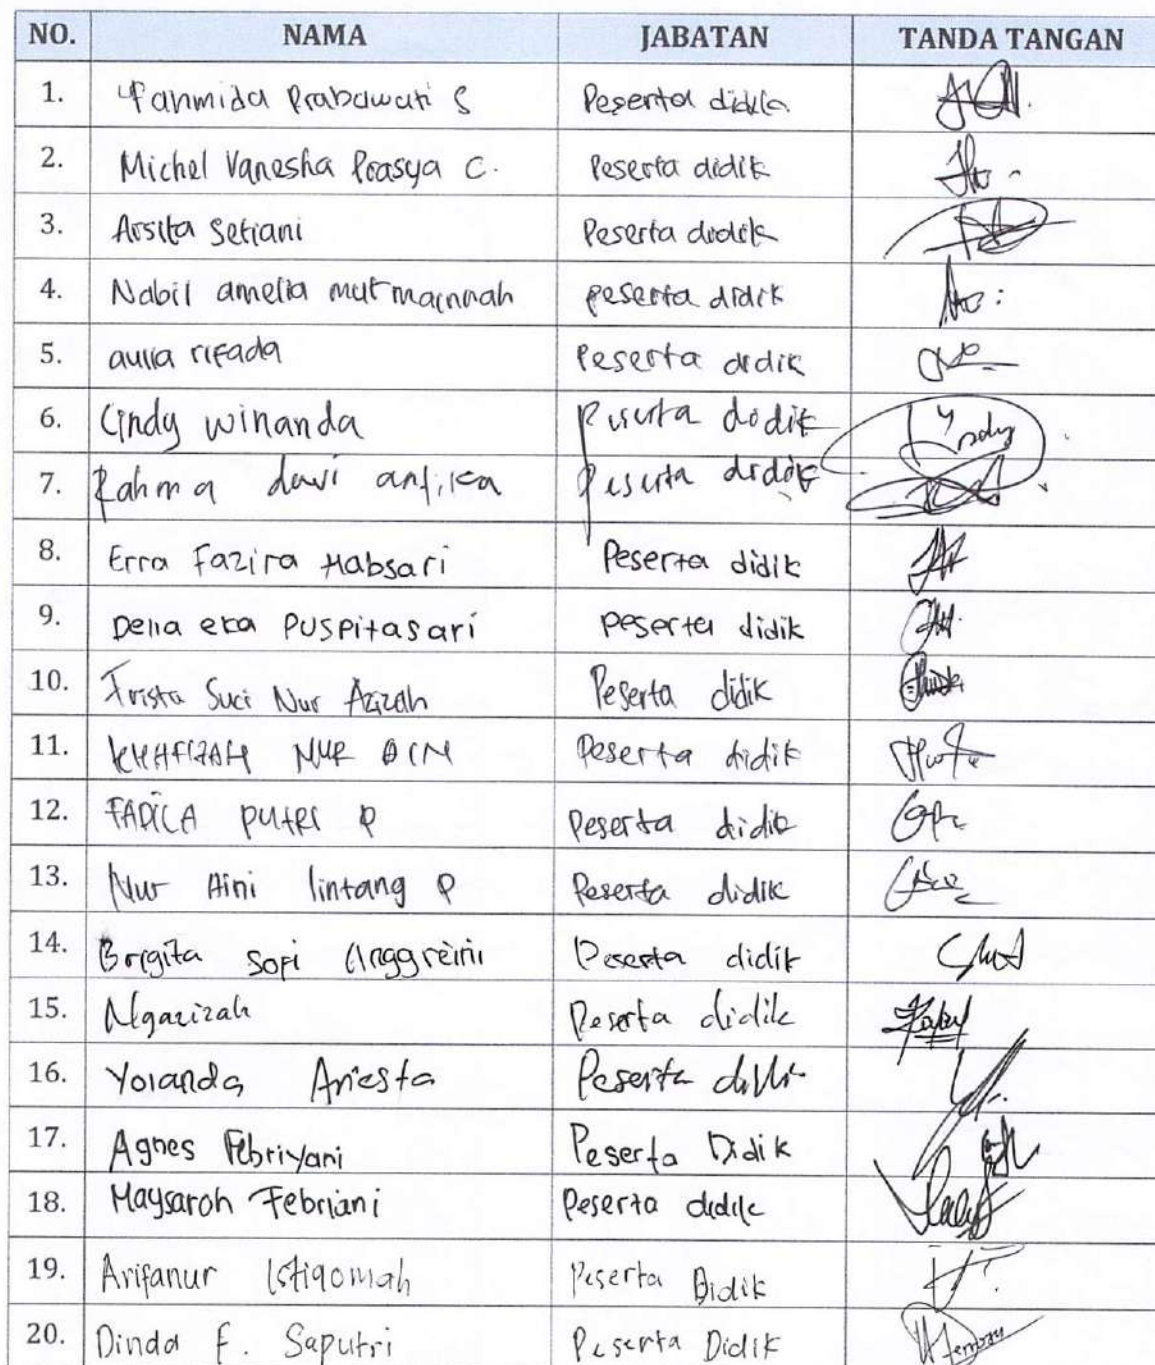 NO. NAMA JABATAN TANDA TANGAN
1. Fahmida Prabawati S Peserta didik
2. Michel Vanesha Prasya C. Peserta didik
3. Arsita Setiani Peserta didik
4. Nabil amelia mutmainnah peserta didik
5. aulia rifada Peserta didik
6. Cindy winanda Peserta didik
7. Rahma dewi antika Peserta didik
8. Erra Fazira Habsari Peserta didik
9. Delia eka Puspitasari peserta didik
10. Trista Suci Nur Azizah Peserta didik
11. KHAFIZAH NUR Peserta didik
12. FADILA PUTRI P Peserta didik
13. Nur Aini lintang P Peserta didik
14. Brigita Sopi Anggreini Peserta didik
15. Ngazizah Peserta didik
16. Yolanda Ariesta Peserta didik
17. Agnes Febriyani Peserta Didik
18. Maysaroh Febriani Peserta didik
19. Arifanur Istiqomah Peserta Didik
20. Dinda F. Saputri Peserta Didik